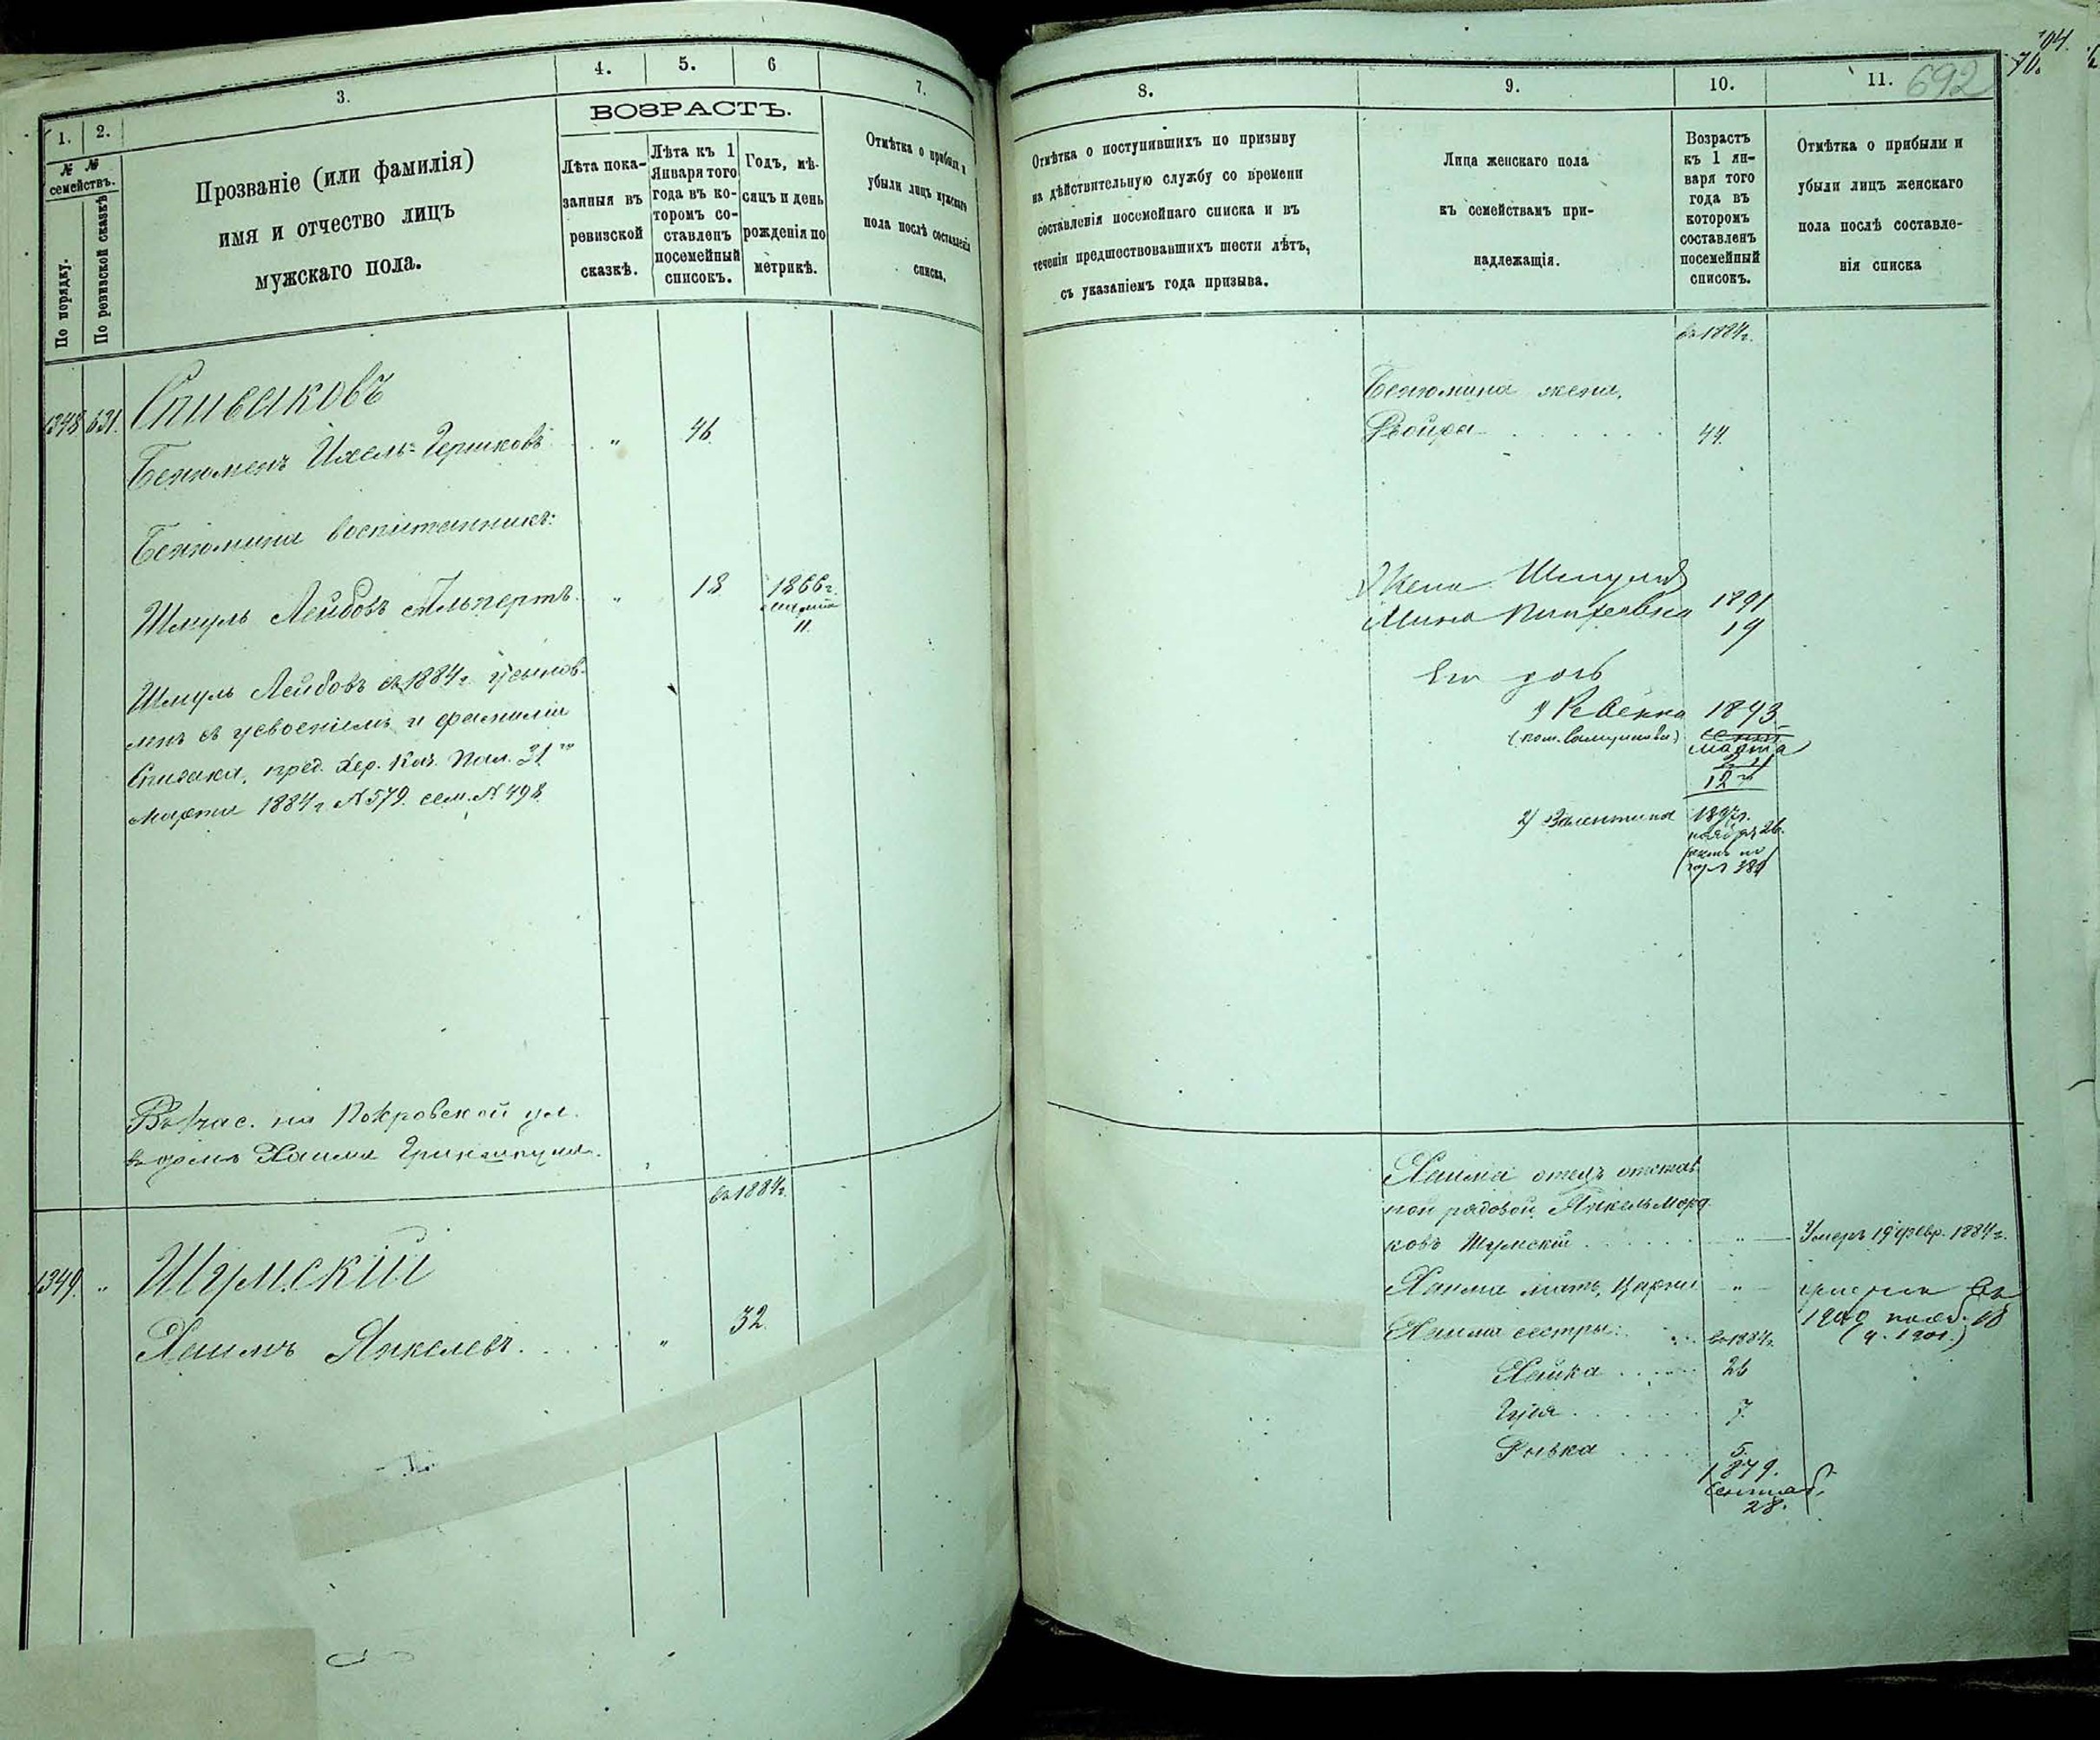 1.
2.
3.
4.
5.
6
7.
№ №
семействъ.
По порядку.
По ревизской сказкѣ
Прозваніе (или фамилія)
имя и отчество лицъ
мужскаго пола.
ВОЗРАСТЪ.
Лѣта пока-
занныя въ
ревизской
сказкѣ.
Лѣта къ 1
Января того
года въ ко-
торомъ со-
ставленъ
посемейный
списокъ.
Годъ, мѣ-
сяцъ и день
рожденія по
метрикѣ.
Отмѣтка о прибыли и
убыли лицъ мужскаго
пола послѣ составленія
списка.
1348 631.
Спиваковъ
Бенюменъ Ихель-Гершковъ " 46
Бенюмина воспитанникъ:
Шмуль Лейбовъ Альпертъ. " 18 1866г.
11.
Шмуль Лейбовъ въ 1884г. усынов-
ленъ съ усвоеніемъ и фамиліи
Спивака, пред. Хер. Каз. Пал. 31го
Марта 1884г № 579. сем. № 498
В 1 час. на Покровской ул.
въ домѣ Хаима
въ 1884г.
1349. "
Шумскій
Хаимъ Янкелевъ. " 32.
704.
70.
692
8.
9.
10.
11.
Отмѣтка о поступившихъ по призыву
на дѣйствительную службу со времени
составленія посемейнаго списка и въ
теченіи предшествовавшихъ шести лѣтъ,
съ указаніемъ года призыва.
Лица женскаго пола
къ семействамъ при-
надлежащія.
Возрастъ
къ 1 ян-
варя того
года въ
которомъ
составленъ
посемейный
списокъ.
Отмѣтка о прибыли и
убыли лицъ женскаго
пола послѣ составле-
нія списка
въ 1884г.
Бенюмина жена,
Двойра 44.
Жена Шмуля
Мина 1891
19
Его дочь
1) Ревекка 1893
марта
12го
2) Валентина 1897г.
ноября 26.
Хаима отецъ отстав
ной рядовой Янкель Морд
ковъ Шумскій " Умеръ 19 февр. 1884г.
Хаима мать, Царна " умерла въ
1900 нояб. 18
(ч. 1901.)
Хаима сестры: въ 1884г.
Хайка 26
Гуля 7.
Рывка 5.
1879.
Сентяб.
28.